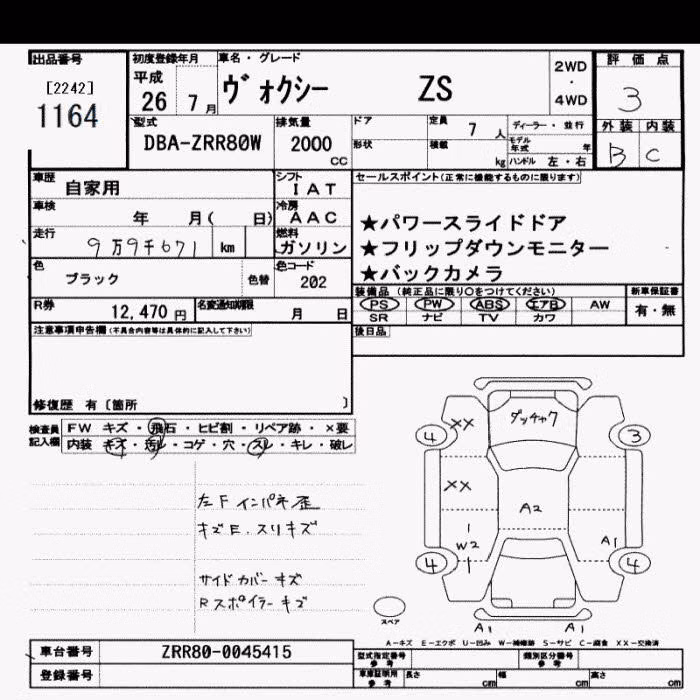 出品番号
[2242]
1164
初度登録年月
平成
26 7月
車名・グレード
ヴォクシー ZS
2WD
・
4WD
評価点
3
外装 内装
B C
型式
DBA-ZRR80W
排気量
2000
CC
ドア
形状
定員
7人
積載
kg
ディーラー・並行
モデル年式 年
ハンドル 左・右
車歴
自家用
シフト
IAT
車検
年 月( 日)
冷房
AAC
走行
9万9千671 km
燃料
ガソリン
色
ブラック
色替
色コード
202
R券
12,470円
名変通知期限
月 日
セールスポイント(正常に機能するものに限ります)
★パワースライドドア
★フリップダウンモニター
★バックカメラ
装備品(純正品に限り○をつけてください)
新車保証書
有・無
PS PW ABS エアB AW
SR ナビ TV カワ
後日品
注意事項申告欄(不具合内容等は具体的に記入して下さい)
修復歴 有〔箇所 〕
検査員記入欄
FW キズ・飛石・ヒビ割・リペア跡・×要
内装 キズ・汚レ・コゲ・穴・スレ・キレ・破レ
左F インパネ歪
キズE.スリキズ
サイドカバーキズ
Rスポイラーキズ
ダッチャク
XX
4
3
XX
A2
W2
A1
4
4
スペア
A1
A1
A−キズ E−エクボ U−凹み W−補修跡 S−サビ C−腐食 XX−交換済
車台番号
ZRR80-0045415
登録番号
型式指定番号
参考
類別区分番号
参考
車庫証明用
参考
長さ cm
幅 cm
高さ cm